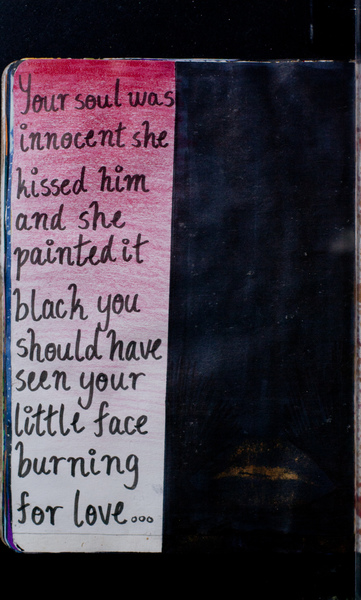 Your soul was
innocent she
kissed him
and she
painted it
black you
should have
seen your
little face
burning
for love...